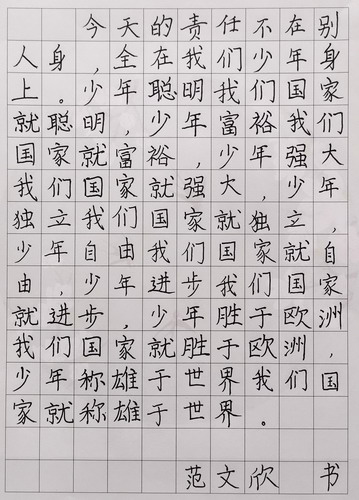 今天的责任不在别
人身，全在我们少年身
上。少年聪明我们国家
就聪明，少年富裕我们
国家就富裕，少年强大
我们国家就强大，少年
独立我们国家就独立，
少年自由我们国家就自
由，少年进步我们国家
就进步，少年胜于欧洲
我们国家就胜于欧洲，
少年称雄于世界我们国
家就称雄于世界。
范文欣 书